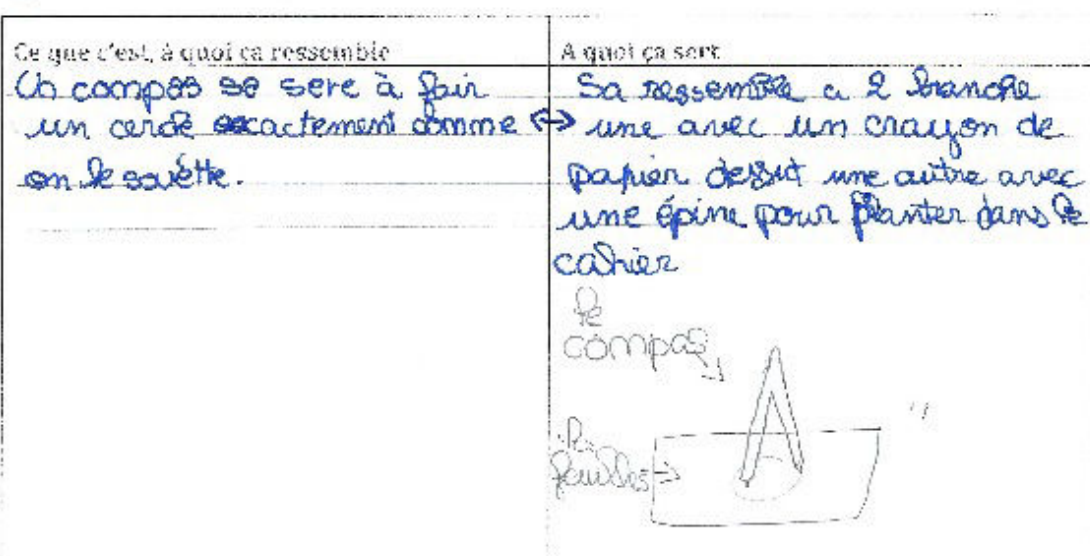 Ce que c'est, à quoi ça ressemble
Un compas se sere à fair
un cercle exactement comme ↔
on le souètte.
A quoi ça sert
Sa ressemble a 2 branche
une avec un crayon de
papier dessut une autre avec
une épine pour planter dans le
cahier
le
compas
feuilles